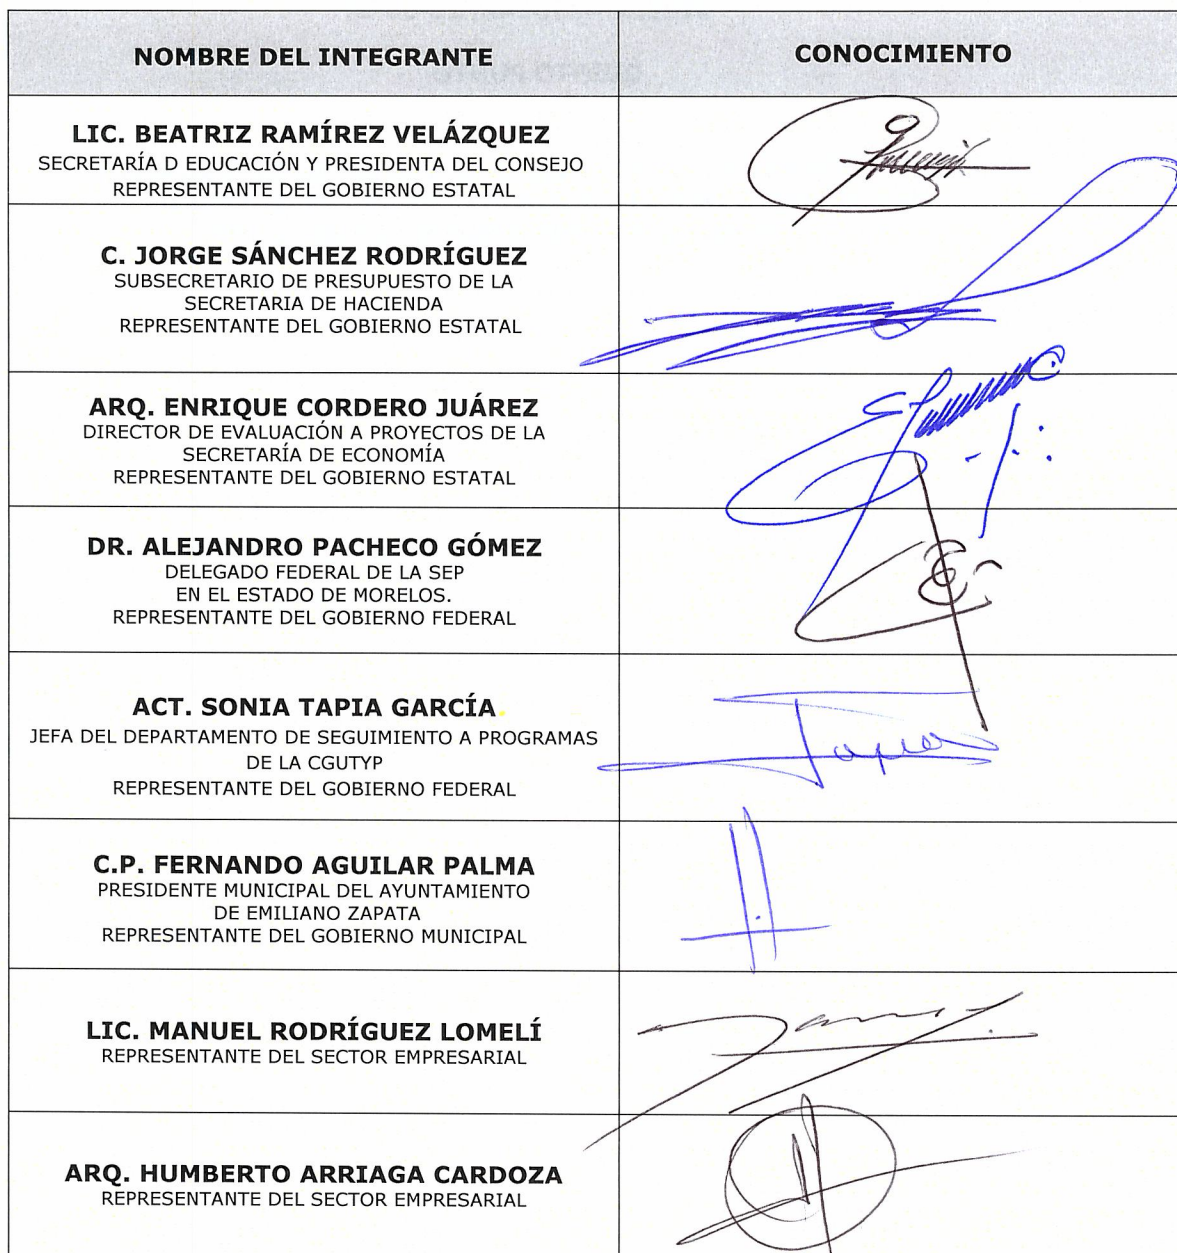 NOMBRE DEL INTEGRANTE
CONOCIMIENTO
LIC. BEATRIZ RAMÍREZ VELÁZQUEZ
SECRETARÍA D EDUCACIÓN Y PRESIDENTA DEL CONSEJO
REPRESENTANTE DEL GOBIERNO ESTATAL
C. JORGE SÁNCHEZ RODRÍGUEZ
SUBSECRETARIO DE PRESUPUESTO DE LA
SECRETARIA DE HACIENDA
REPRESENTANTE DEL GOBIERNO ESTATAL
ARQ. ENRIQUE CORDERO JUÁREZ
DIRECTOR DE EVALUACIÓN A PROYECTOS DE LA
SECRETARÍA DE ECONOMÍA
REPRESENTANTE DEL GOBIERNO ESTATAL
DR. ALEJANDRO PACHECO GÓMEZ
DELEGADO FEDERAL DE LA SEP
EN EL ESTADO DE MORELOS.
REPRESENTANTE DEL GOBIERNO FEDERAL
ACT. SONIA TAPIA GARCÍA.
JEFA DEL DEPARTAMENTO DE SEGUIMIENTO A PROGRAMAS
DE LA CGUTYP
REPRESENTANTE DEL GOBIERNO FEDERAL
Tapia
C.P. FERNANDO AGUILAR PALMA
PRESIDENTE MUNICIPAL DEL AYUNTAMIENTO
DE EMILIANO ZAPATA
REPRESENTANTE DEL GOBIERNO MUNICIPAL
LIC. MANUEL RODRÍGUEZ LOMELÍ
REPRESENTANTE DEL SECTOR EMPRESARIAL
ARQ. HUMBERTO ARRIAGA CARDOZA
REPRESENTANTE DEL SECTOR EMPRESARIAL